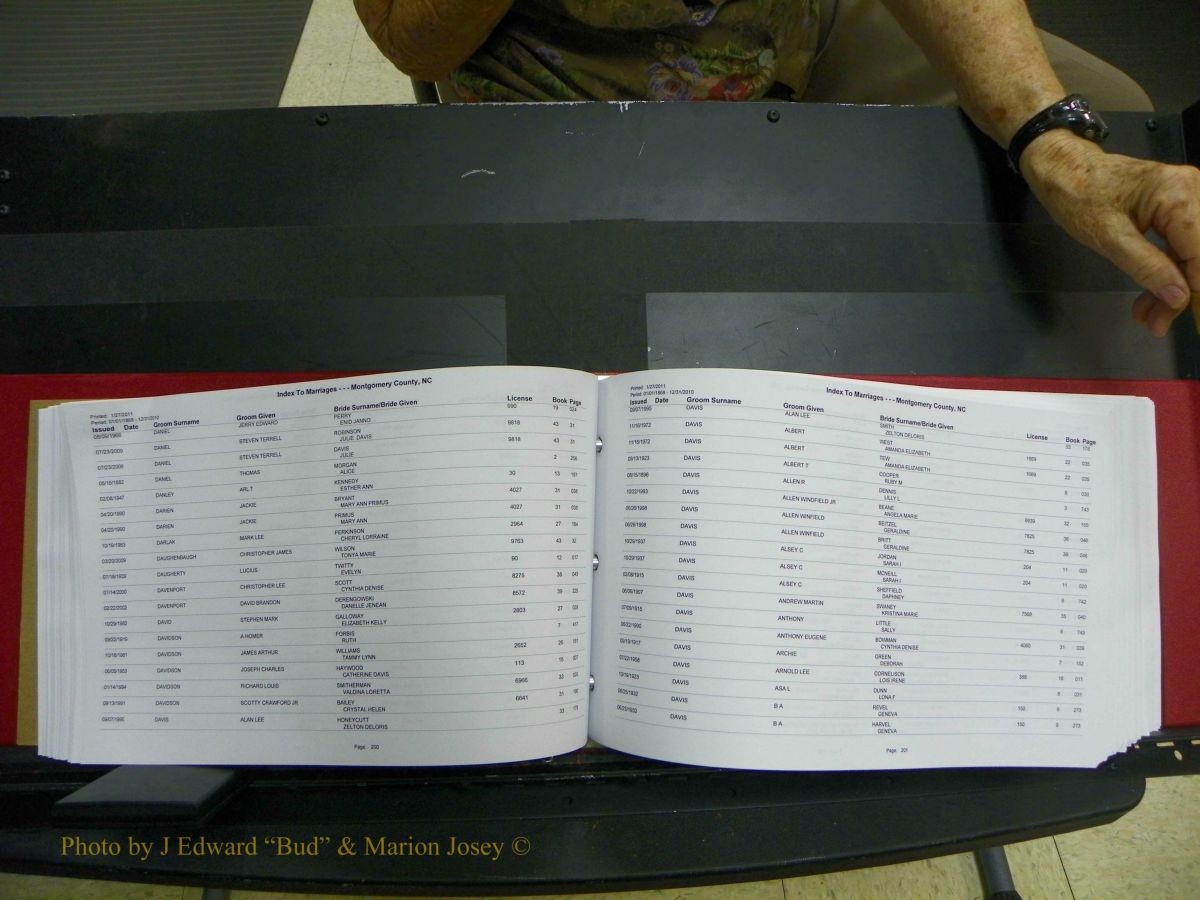 Index To Marriages - - - Montgomery County, NC
Printed: 1/27/2011
Period: 01/01/1868 - 12/31/2010
Issued Date Groom Surname Groom Given Bride Surname/Bride Given License Book Page
DANIEL JERRY EDWARD PERRY 990 19 024
ENID JANNO
07/23/2009 DANIEL STEVEN TERRELL ROBINSON 9818 43 31
JULIE DAVIS
07/23/2009 DANIEL STEVEN TERRELL DAVIS 9818 43 31
JULIE
DANIEL THOMAS MORGAN 2 256
ALICE
02/08/1947 DANLEY ARL T KENNEDY 30 13
ESTHER ANN
04/20/1990 DARIEN JACKIE BRYANT 4027 31 038
MARY ANN PRIMUS
04/20/1990 DARIEN JACKIE PRIMUS 4027 31 038
MARY ANN
10/19/1983 DARLAK MARK LEE PERKINSON 2964 27 184
CHERYL LORRAINE
03/20/2009 DAUGHENBAUGH CHRISTOPHER JAMES WILSON 9763 43 32
TONYA MARIE
DAUGHERTY LUCIUS TWITTY 90 12 017
EVELYN
07/14/2000 DAVENPORT CHRISTOPHER LEE SCOTT 8275 38 043
CYNTHIA DENISE
02/22/2002 DAVENPORT DAVID BRANDON DERENGOWSKI 8572 39 225
DANIELLE JENEAN
10/29/1982 DAVID STEPHEN MARK GALLOWAY 2803 27 028
ELIZABETH KELLY
09/22/1919 DAVIDSON A HOMER FORBIS 7 417
RUTH
10/16/1981 DAVIDSON JAMES ARTHUR WILLIAMS 2652 26 191
TAMMY LYNN
06/05/1953 DAVIDSON JOSEPH CHARLES HAYWOOD 113 15
CATHERINE DAVIS
01/14/1994 DAVIDSON RICHARD LOUIS SMITHERMAN 6966 33
VALDINA LORETTA
09/13/1991 DAVIDSON SCOTTY CRAWFORD JR BAILEY 6641 31 190
CRYSTAL HELEN
09/07/1995 DAVIS ALAN LEE HONEYCUTT 33 178
ZELTON DELORIS
Page 200
Index To Marriages - - - Montgomery County, NC
Printed: 1/27/2011
Period: 01/01/1868 - 12/31/2010
Issued Date Groom Surname Groom Given Bride Surname/Bride Given License Book Page
09/07/1995 DAVIS ALAN LEE SMITH 33 178
ZELTON DELORIS
11/16/1972 DAVIS ALBERT WEST 1669 22 035
AMANDA ELIZABETH
11/16/1972 DAVIS ALBERT TEW 1669 22 035
AMANDA ELIZABETH
09/13/1923 DAVIS ALBERT T COOPER 8 030
RUBY M
08/15/1896 DAVIS ALLEN R DENNIS 3 743
LILLY L
10/22/1993 DAVIS ALLEN WINDFIELD JR BEANE 6939 32 155
ANGELA MARIE
06/26/1998 DAVIS ALLEN WINFIELD BEITZEL 7825 36 046
GERALDINE
06/26/1998 DAVIS ALLEN WINFIELD BRITT 7825 36 046
GERALDINE
10/29/1937 DAVIS ALSEY C JORDAN 204 11 020
SARAH I
10/29/1937 DAVIS ALSEY C MCNEILL 204 11 020
SARAH I
03/08/1915 DAVIS ALSEY C SHEFFIELD 6 742
DAPHNEY
DAVIS ANDREW MARTIN SWANEY 7568 35 040
KRISTINA MARIE
DAVIS ANTHONY LITTLE 6 743
SALLY
06/22/1990 DAVIS ANTHONY EUGENE BOWMAN 4060 31 039
CYNTHIA DENISE
DAVIS ARCHIE GREEN 7 152
DEBORAH
07/22/1958 DAVIS ARNOLD LEE CORNELISON 388 16 011
LOIS IRENE
10/19/1923 DAVIS ASA L DUNN 8 031
LONA F
06/25/1932 DAVIS B A REVEL 150 9 273
GENEVA
06/25/1932 DAVIS B A HARVEL 150 9 273
GENEVA
Page 201
Photo by J Edward “Bud” & Marion Josey ©